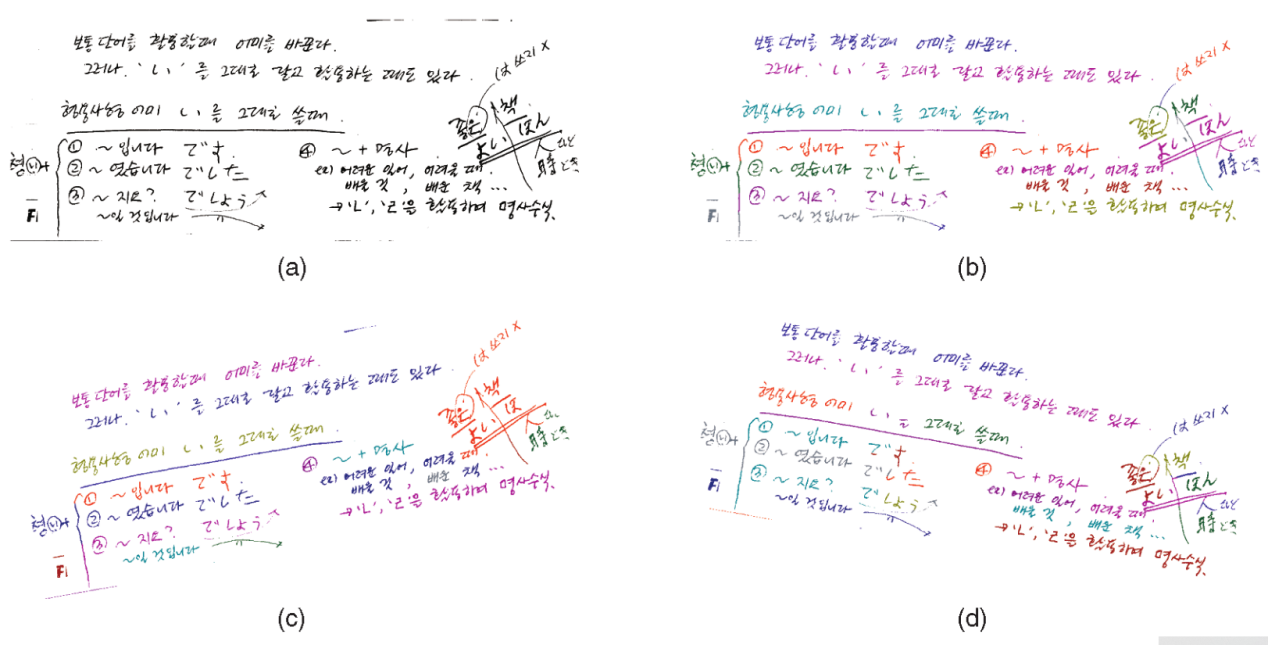 보통 단어를 활용할때 어미를 바꾼다.
그러나. 'い' 를 그대로 갈고 활용하는 때도 있다.
형용사형 어미 い 를 그대로 쓸때.
① ~입니다 です.
② ~였습니다 でした
③ ~지요? でしょう
~일 것입니다
④ ~ + 명사
ex) 어려운 있어, 어려울 때.
배울 것, 배운 책 ...
→ 'ㄴ', 'ㄹ'을 합하며 명사수식.
쓰지 X
좋은 책
よい ほん
人 ひと
時 とき
(a)
보통 단어를 활용할때 어미를 바꾼다.
그러나. 'い' 를 그대로 갈고 활용하는 때도 있다.
형용사형 어미 い 를 그대로 쓸때.
① ~입니다 です.
② ~였습니다 でした
③ ~지요? でしょう
~일 것입니다
④ ~ + 명사
ex) 어려운 있어, 어려울 때.
배울 것, 배운 책 ...
→ 'ㄴ', 'ㄹ'을 합하며 명사수식.
쓰지 X
좋은 책
よい ほん
人 ひと
時 とき
(b)
보통 단어를 활용할때 어미를 바꾼다.
그러나. 'い' 를 그대로 갈고 활용하는 때도 있다.
형용사형 어미 い 를 그대로 쓸때.
① ~입니다 です.
② ~였습니다 でした
③ ~지요? でしょう
~일 것입니다
④ ~ + 명사
ex) 어려운 있어, 어려울 때.
배울 것, 배운 책 ...
→ 'ㄴ', 'ㄹ'을 합하며 명사수식.
쓰지 X
좋은 책
よい ほん
人 ひと
時 とき
(c)
보통 단어를 활용할때 어미를 바꾼다.
그러나. 'い' 를 그대로 갈고 활용하는 때도 있다.
형용사형 어미 い 를 그대로 쓸때.
① ~입니다 です.
② ~였습니다 でした
③ ~지요? でしょう
~일 것입니다
④ ~ + 명사
ex) 어려운 있어, 어려울 때.
배울 것, 배운 책 ...
→ 'ㄴ', 'ㄹ'을 합하며 명사수식.
쓰지 X
좋은 책
よい ほん
人 ひと
時 とき
(d)